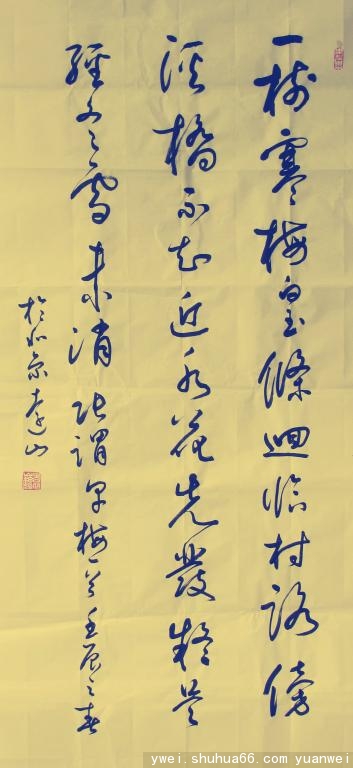 一树寒梅白玉條迴临村路傍
溪橋不知近水花先發疑是
經冬雪未消张谓早梅一首壬辰之春
於北京
ywei.shuhua66.com/yuanwei